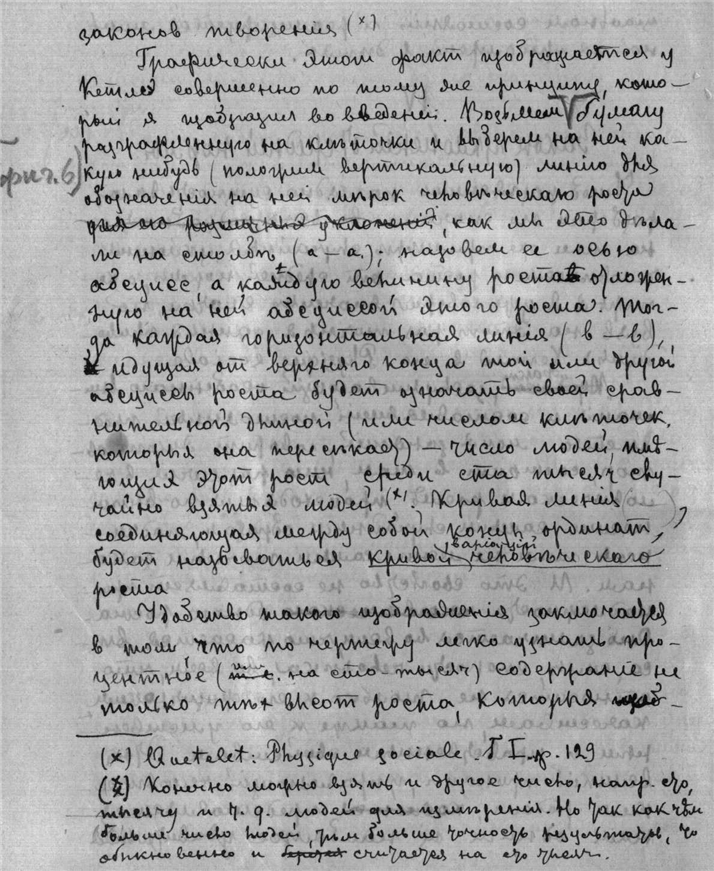 законов творения (x)
Графически этот факт изображается у
Кетле совершенно по тому же принципу, кото-
рый я изобразил во введении. Возьмем бумагу
разграфленную на клѣточки и выберем на ней ка-
кую нибудь (положим вертикальную) линию для
(фиг. 6)
обозначения на ней мѣрок человѣческаго роста
для его уклонений, как мы это дѣла-
ли на столбѣ (а – а₁); назовем ее осью
абсцисс, а каждую величину роста отложен-
ную на ней абсциссой этого роста. Тог-
да каждая горизонтальная линия (в – в),
идущая от верхняго конца той или другой
абсциссы роста будет означать своей срав-
нительной длиной (или числом клѣточек,
которыя она пересѣкает) – число людей, имѣ-
ющих этот рост, среди ста тысяч слу-
чайно взятых людей (x). Кривая линия,
соединяющая между собой концы ординат,
будет называться кривой вариаций человѣческаго
роста
Удобство такого изображения заключается
в том что по чертежу легко узнать про-
центное (т.е. на сто тысяч) содержание не
только тѣх высот роста, которыя изоб-
(x) Quetelet: Physique sociale. T I. p. 129
(x) Конечно можно взять и другое число, напр. сто,
тысячу и т. д. людей для измѣрения. Но так как чѣм
больше число людей, тѣм больше точность результатов, то
обыкновенно и считается на сто тысяч.